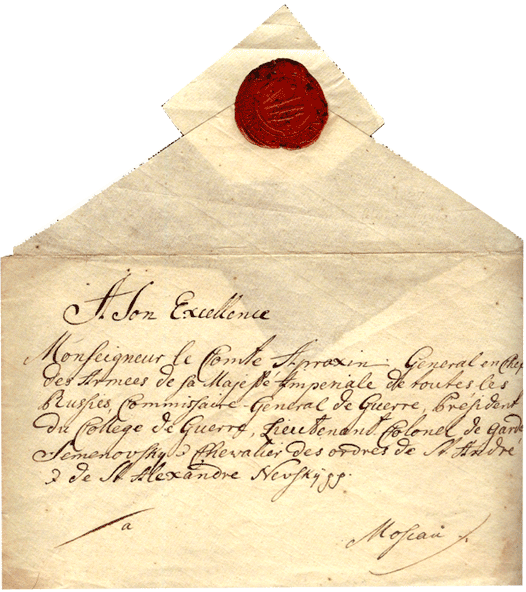 A Son Excellence
Monseigneur le Comte Apraxin General en Chef
des Armees de sa Majesté Imperiale de toutes les
Russies, Commissaire General de Guerre, Président
du College de Guerre, Lieutenant Colonel de Garde
Semenovsky & Chevalier des ordres de St. André
& de St. Alexandre Nevsky
a Moscau